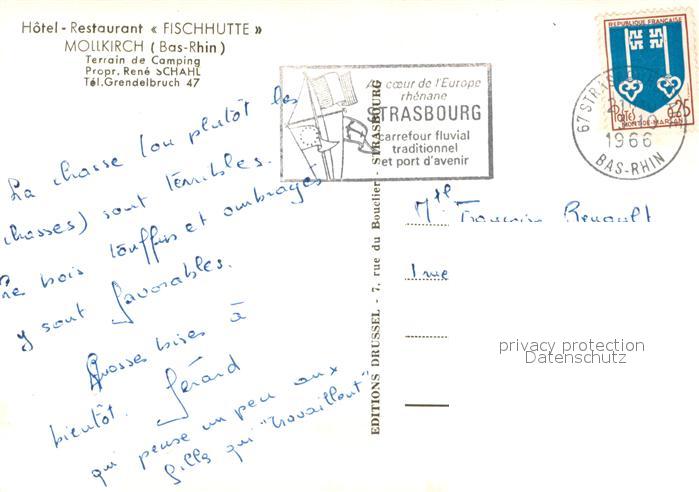 Hôtel-Restaurant « FISCHHUTTE »
MOLLKIRCH (Bas-Rhin)
Terrain de Camping
Propr. René SCHAHL
Tél. Grendelbruch 47
La chasse (ou plutôt les
chasses) sont terribles.
Les bois touffus et ombragés
y sont favorables.
Grosses bises à
bientôt. Gérard
qui pense un peu aux
filles qui "travaillent"
EDITIONS DRUSSEL - 7, rue du Bouclier - STRASBOURG
Au cœur de l'Europe
rhénane
STRASBOURG
carrefour fluvial
traditionnel
et port d'avenir
REPUBLIQUE FRANÇAISE
Postes 0,25
MONT-DE-MARSAN
67 STRASBOURG
1966
BAS-RHIN
Mlle Françoise Renault
1 rue
privacy protection
Datenschutz